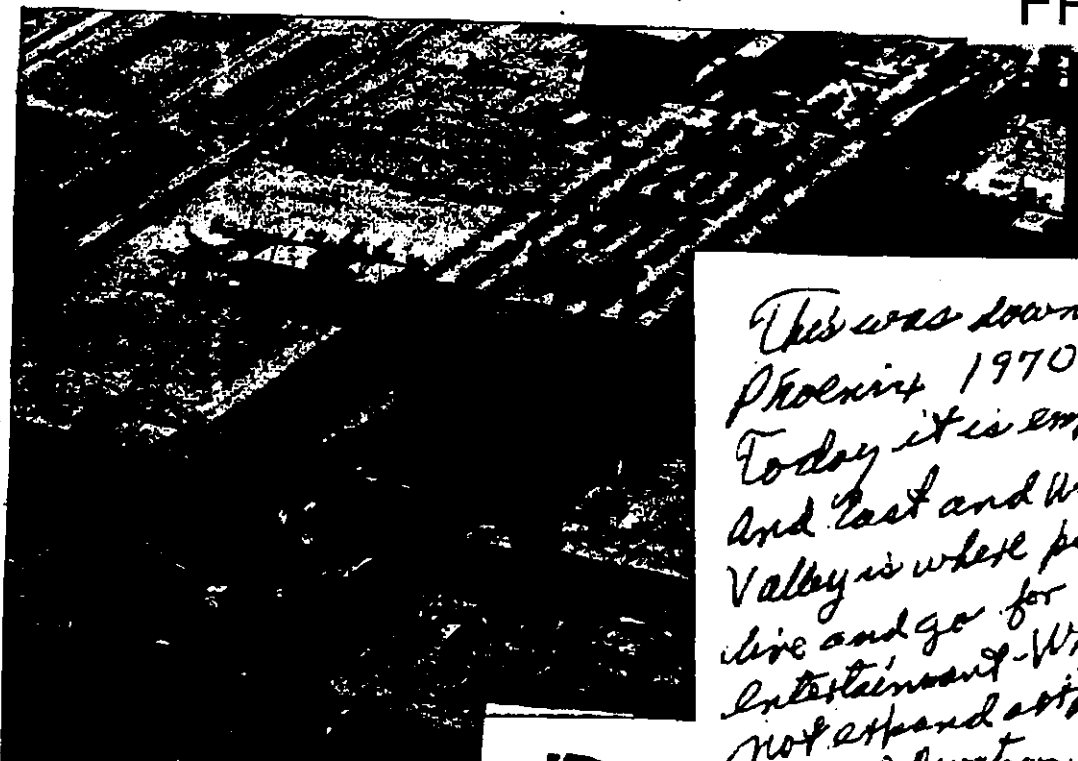 FR
This was down
Phoenix 1970
Today it is em
and East and W
Valley is where p
live and go for
entertainment - W
not expand